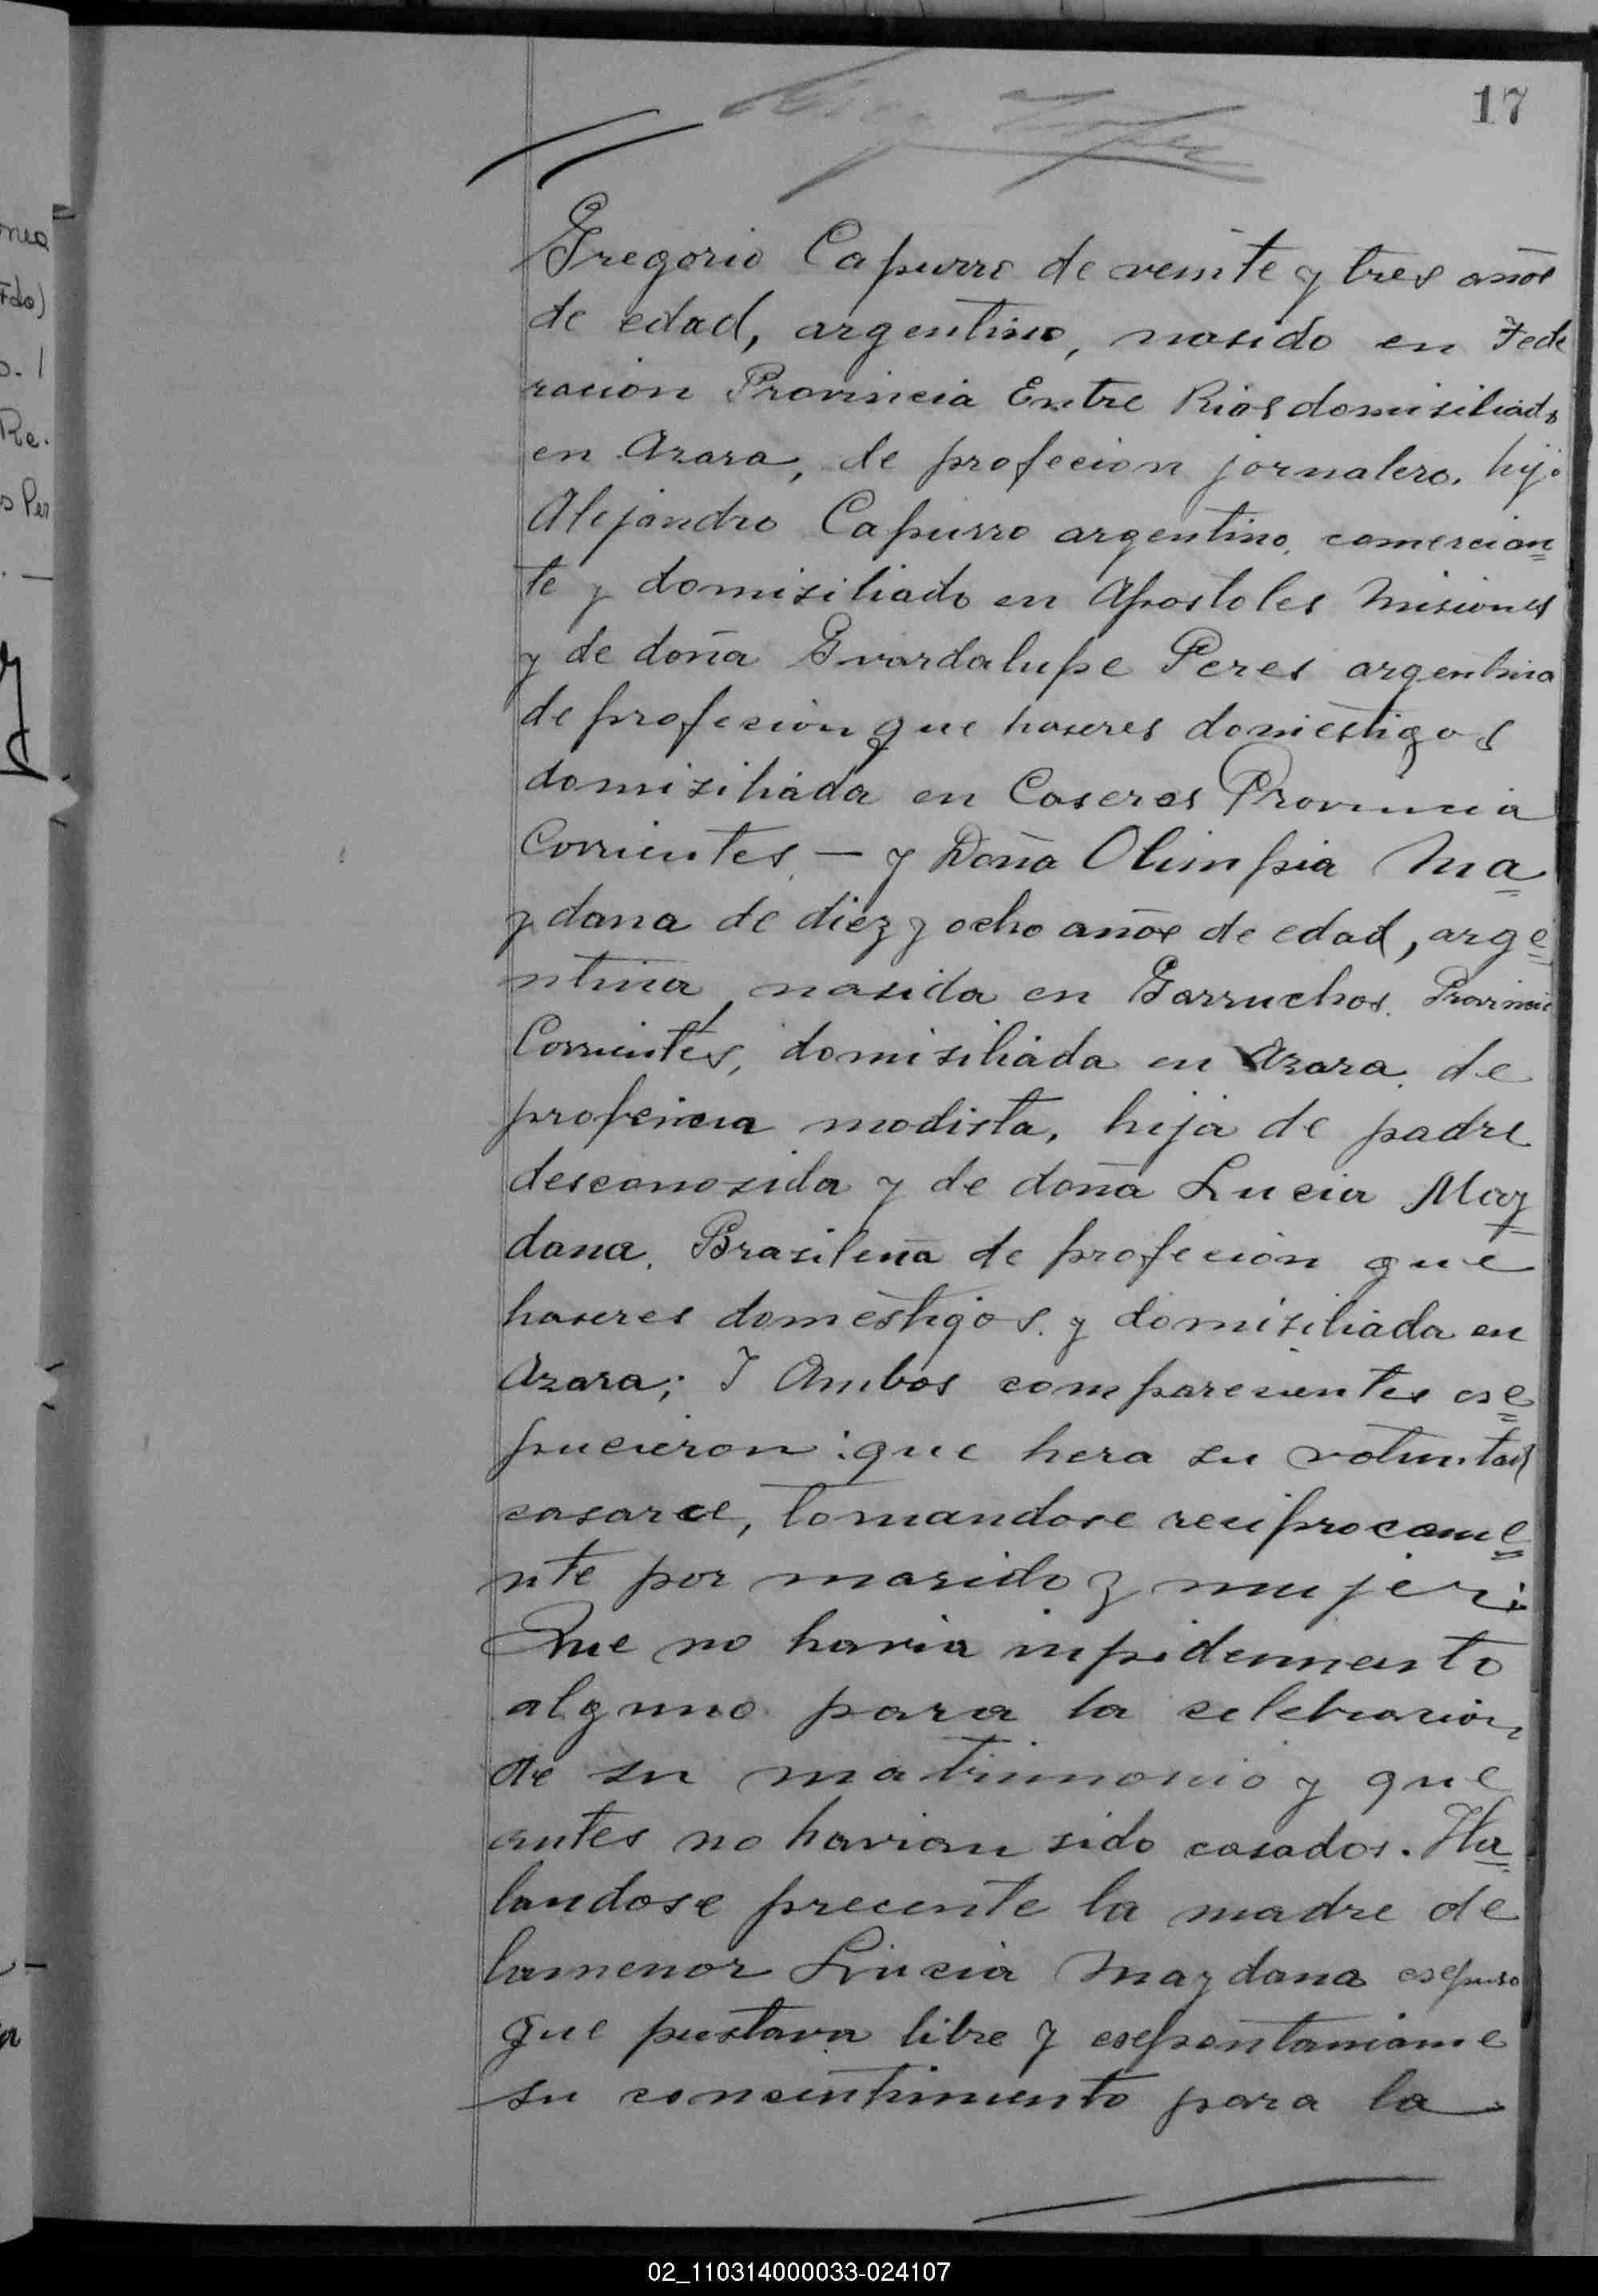 17
Gregorio Capurro de veinte y tres años
de edad, argentino, nasido en Fede
racion Provincia Entre Rios domisiliado
en Azara, de profecion jornalero. hijo
Alejandro Capurro argentino, comercian
te y domisiliado en Apostoles Misiones
y de doña Guardalupe Peres argentina
de profecion que haseres domestigos
domisiliada en Caseres Provincia
Corrientes. — y Doña Olimpia Ma
ydana de diez y ocho años de edad, arge
ntina, nasida en Garruchos. Provincia
Corrientes, domisiliada en Azara. de
profecion modista, hija de padre
desconosida y de doña Lucia May
dana. Brasileña de profecion que
haseres domestigos. y domisiliada en
Azara; I Ambos comparecientes ese
pucieron: que hera su voluntad
casarce, tomandose reciprocame
nte por marido y mujer:
Que no havia inpidemento
alguno para la celebracion
de su matrimonio y que
antes no havian sido casados. Ha
landose precente la madre de
lamenor Lucia Maydana esepuso
que prestava libre y esepontaniame
su concentimiento para la
02_110314000033-024107